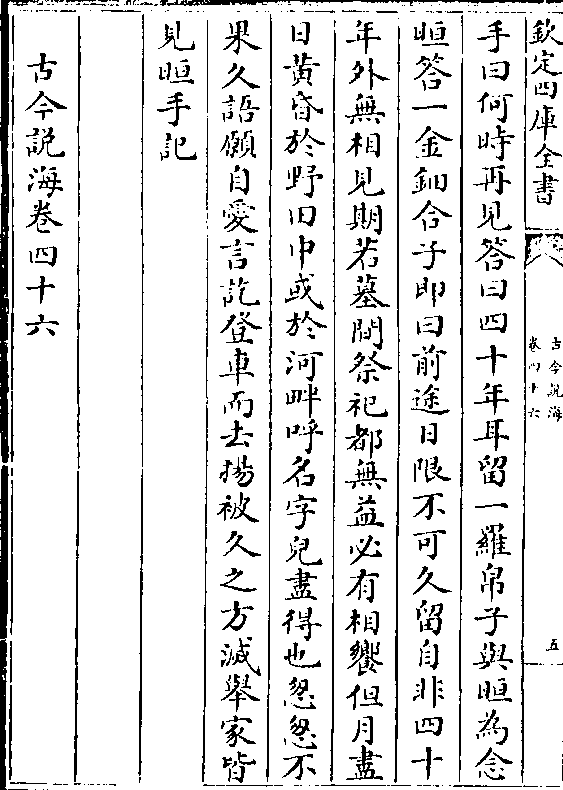 欽定四庫全書
古今說海
卷四十六
五
手曰何時再見答曰四十年耳留一羅帛子與晅為念
晅答一金鈿合子即曰前途日限不可久留自非四十
年外無相見期若墓間祭祀都無益必有相饗但月盡
日黃昏於野田中或於河畔呼名字兒盡得也怱怱不
果久語願自愛言訖登車而去揚被久之方滅舉家皆
見晅手記
古今說海卷四十六